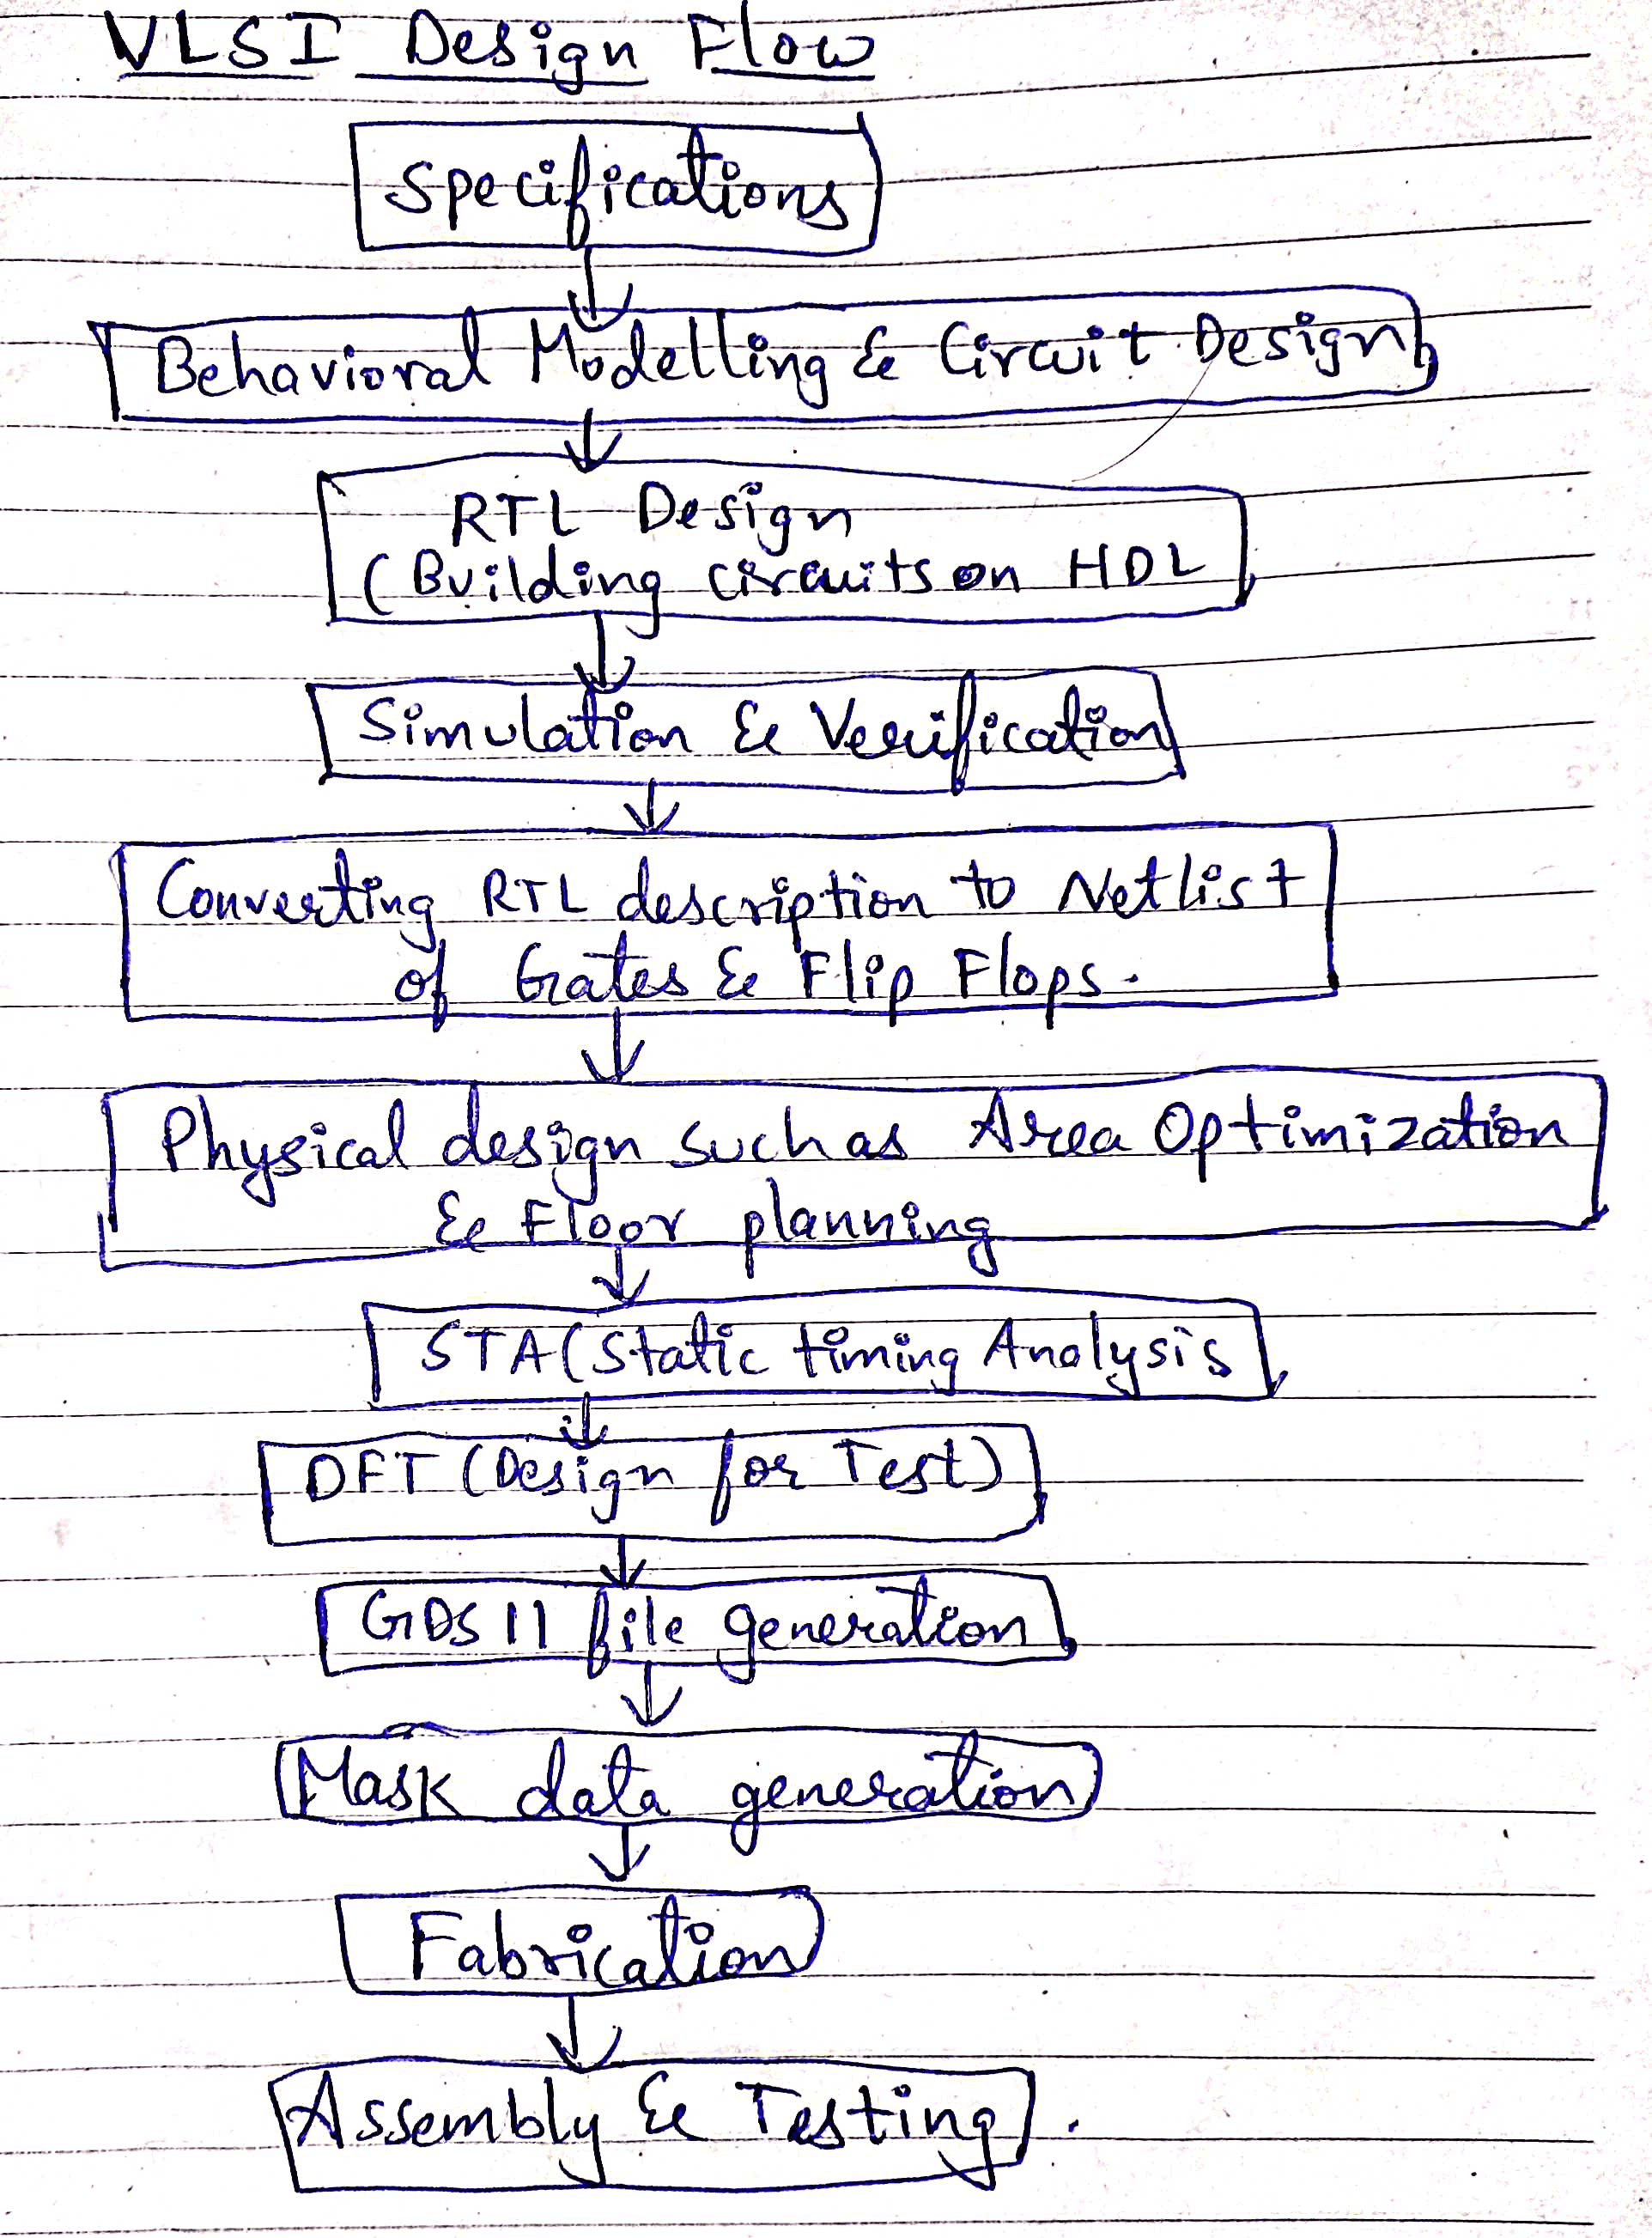 VLSI Design Flow
Specifications
Behavioral Modelling & Circuit Design
RTL Design
(Building circuits on HDL
Simulation & Verification
Converting RTL description to Netlist
of Gates & Flip Flops.
Physical design such as Area Optimization
& Floor planning
STA (Static timing Analysis
DFT (Design for Test)
GDS II file generation
Mask data generation
Fabrication
Assembly & Testing.